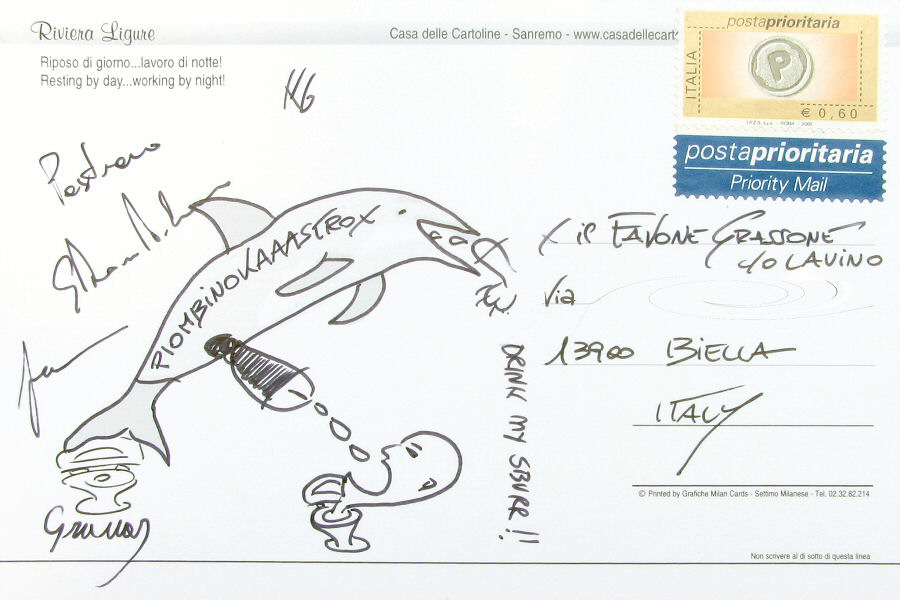 Riviera Ligure
Riposo di giorno...lavoro di notte!
Resting by day...working by night!
Casa delle Cartoline - Sanremo - www.casadellecart
postaprioritaria
ITALIA
P
€ 0,60
I.P.Z.S. S.p.A. - ROMA - 2006
postaprioritaria
Priority Mail
PIOMBINOKAAASTROX
DRINK MY SBURR!!
x il FAVONE GRASSONE
c/o LAVINO
Via
13900 BIELLA
ITALY
© Printed by Grafiche Milan Cards - Settimo Milanese - Tel. 02.32.82.214
Non scrivere al di sotto di questa linea